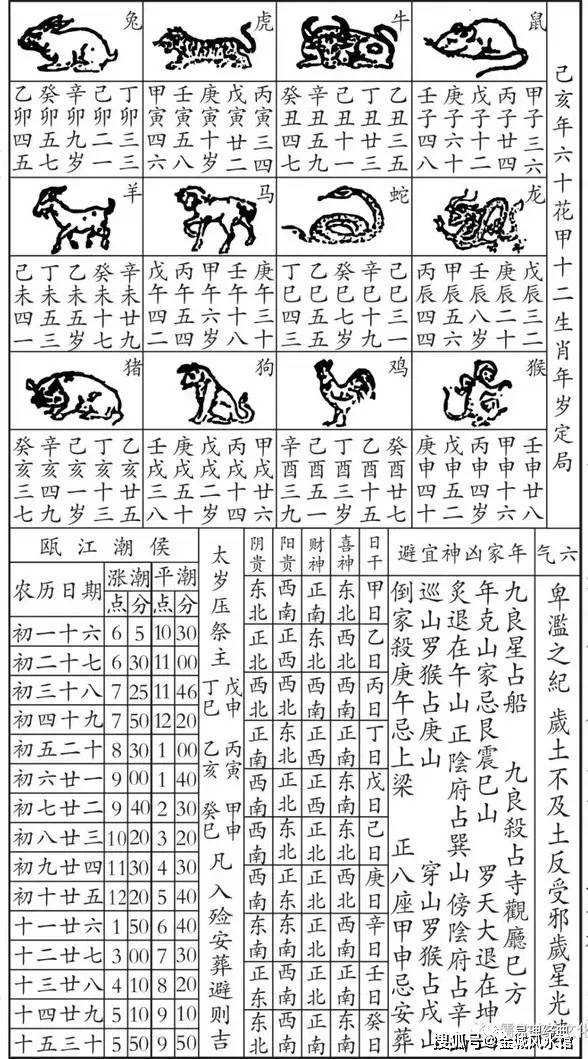 己亥年六十花甲十二生肖年岁定局
鼠
甲子三六
丙子廿四
戊子十二
庚子六十
壬子四八
牛
乙丑三五
丁丑廿三
己丑十一
辛丑五九
癸丑四七
虎
丙寅三四
戊寅廿二
庚寅十岁
壬寅五八
甲寅四六
兔
丁卯三三
己卯二一
辛卯九岁
癸卯五七
乙卯四五
龙
戊辰三二
庚辰二十
壬辰八岁
甲辰五六
丙辰四四
蛇
己巳三一
辛巳十九
癸巳七岁
乙巳五五
丁巳四三
马
庚午三十
壬午十八
甲午六岁
丙午五四
戊午四二
羊
辛未廿九
癸未十七
乙未五岁
丁未五三
己未四一
猴
壬申廿八
甲申十六
丙申四岁
戊申五二
庚申四十
鸡
癸酉廿七
乙酉十五
丁酉三岁
己酉五一
辛酉三九
狗
甲戌廿六
丙戌十四
戊戌二岁
庚戌五十
壬戌三八
猪
乙亥廿五
丁亥十三
己亥一岁
辛亥四九
癸亥三七
六气
卑濫之紀 歲土不及土反受邪歲星光
年家凶神宜避
九良星占船 九良殺占寺觀廳巳方
年克山家忌艮震巳山 罗天大退在坤
炙退在午山正陰府占巽山傍陰府占辛
巡山罗猴占庚山 穿山罗猴占戌山
倒家殺庚午忌上梁 正八座甲申忌安葬
日干 喜神 财神 阳贵 阴贵
甲日
乙日
丙日
丁日
戊日
己日
庚日
辛日
壬日
癸日
太岁压祭主
戊申 丁巳
丙寅 乙亥
甲申 癸巳
凡入殓安葬避则吉
瓯江潮候
农历日期 涨潮 平潮
点 分 点 分
初一十六 6 5 10 30
初二十七 6 30 11 00
初三十八 7 25 11 46
初四十九 7 50 12 20
初五二十 8 30 1 00
初六廿一 9 00 1 40
初七廿二 9 40 2 30
初八廿三 10 20 3 20
初九廿四 11 30 4 30
初十廿五 12 20 5 40
十一廿六 1 50 6 40
十二廿七 3 00 7 30
十三廿八 4 10 8 20
十四廿九 5 10 9 10
十五三十 5 50 9 50
搜狐号@金城风水馆